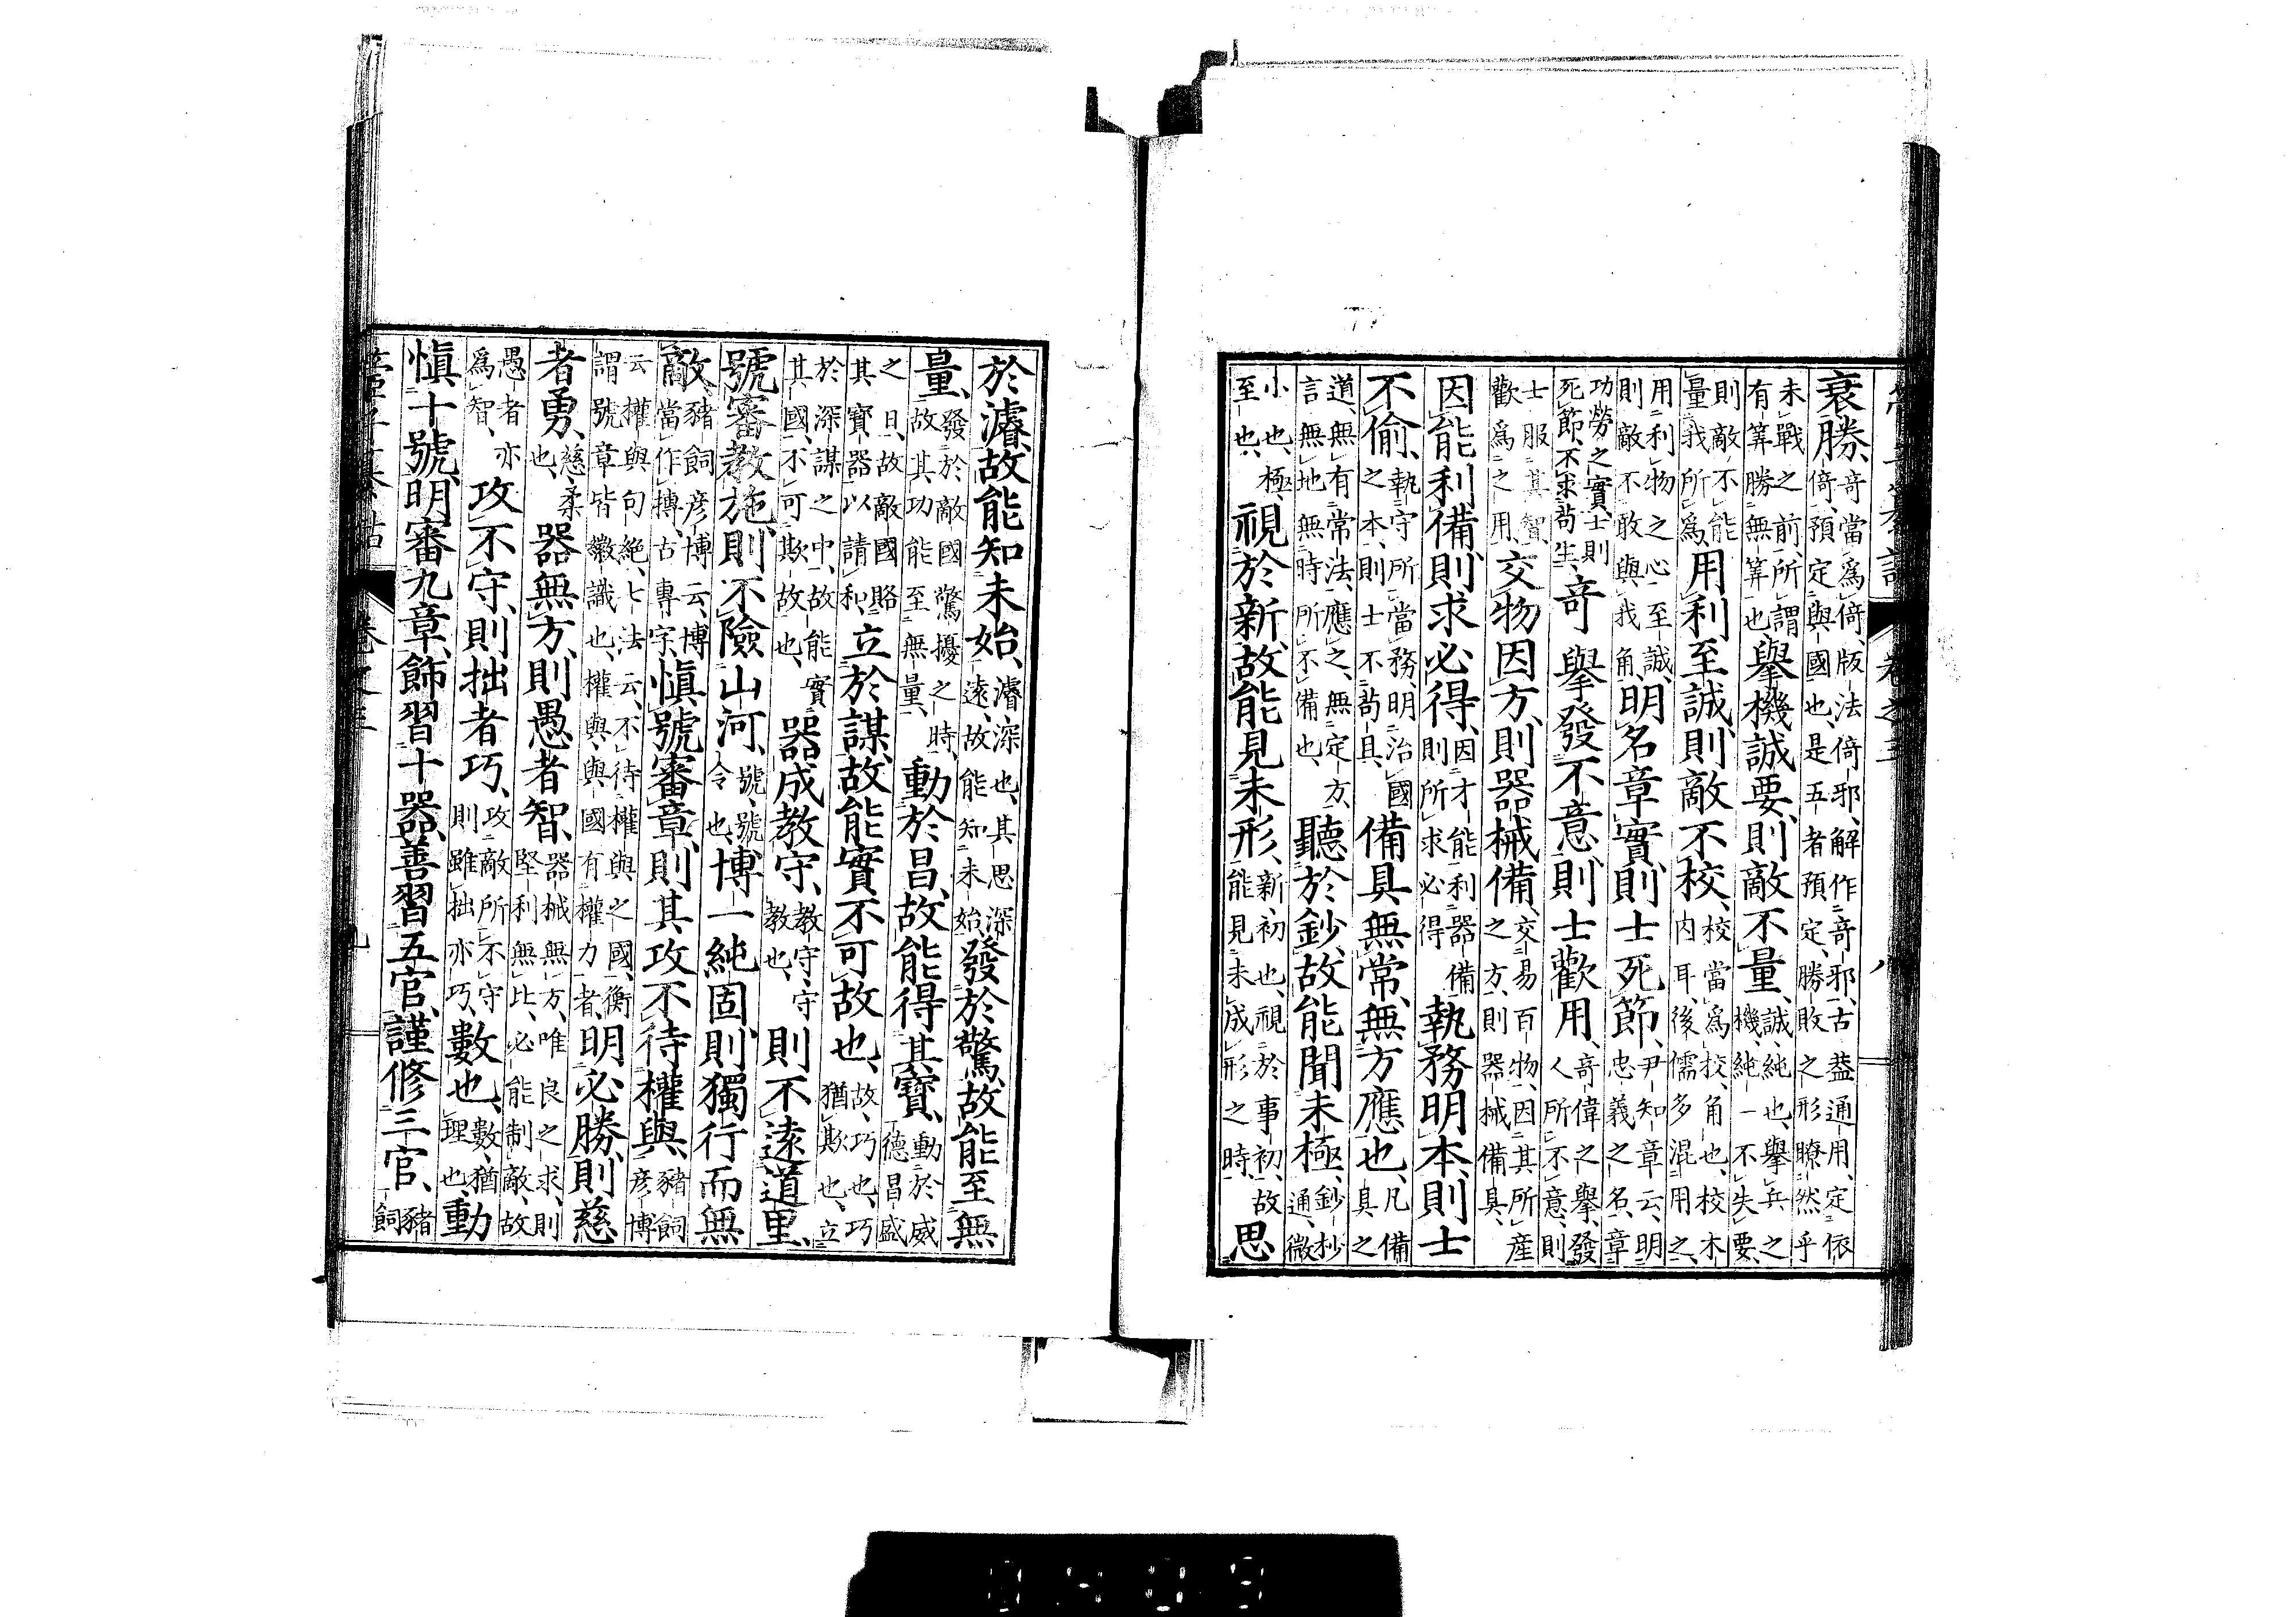 管子纂詁 卷之三 八
衰勝、奇當爲倚、版法倚邪、解作奇邪、古葢通用、定依倚、預定與國也、是五者預定、勝敗之形瞭然乎
未戰之前、所謂有筭勝無筭也擧機誠要、則敵不量、誠、純也、擧兵之機、純一不失要、
則敵不能量我所爲、用利至誠、則敵不校、校當爲校、角也、校木内耳、後儒多混用之、
用利物之心至誠、則敵不敢與我角、明名章實、則士死節、尹知章云、明忠義之名、章
功勞之實、士則死節、不求苟生、奇擧發不意、則士歡用、奇偉之擧、發人所不意、則
士服其智、歡爲之用、交物因方、則器械備、交易百物、因其所產之方、則器械備具、
因能利備、則求必得、因才能利器備則所求必得執務明本、則士
不偷、執守所當務、明治國之本、則士不苟且、備具無常、無方應也、凡備具之
道、無有常法、應之、無定方、言無地無時所不備也、聽於鈔、故能聞未極、鈔杪通、微
小也、極、至也、視於新、故能見未形、新、初也、視於事初、故能見未成形之時、思
於濬、故能知未始、濬深也、其思深遠、故能知未始、發於驚、故能至無
量、發於敵國驚擾之時、故其功能至無量、動於昌、故能得其寶、動於威德昌盛
之日、故敵國賂其寶器以請和、立於謀、故能實不可故也、故、巧也、巧猶欺也、立
於深謀之中、故能實其國、不可欺故也、器成教守、教守、守教也、則不遠道里、
號審教施、則不險山河、號、號令也、博一純固、則獨行而無
敵、豬飼彥博云、博當作摶、古專字、慎號審章、則其攻不待權與、豬飼彥博
云、權與句絕、七法云、不待權與之國、衡謂號章皆徽識也、權與、與國有權力者、明必勝、則慈
者勇、慈、柔也、器無方、則愚者智、器械無方、唯良之求、則堅利無比、必能制敵、故
愚者亦爲智、攻不守、則拙者巧、攻敵所不守則雖拙亦巧、數也、數、猶理也、動
慎十號、明審九章、飾習十器、善習五官、謹修三官、豬飼
管子纂詁 卷之三 九